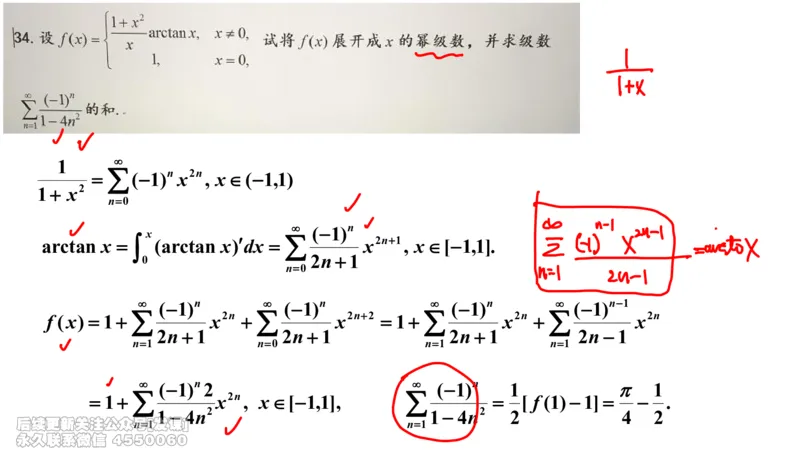 34. 设 f(x) = { (1+x²)/x arctan x, x ≠ 0, 1, x = 0, 试将 f(x) 展开成 x 的幂级数，并求级数
∑_{n=1}^{∞} (-1)ⁿ/(1-4n²) 的和.
1/(1+x)
1/(1+x²) = ∑_{n=0}^{∞} (-1)ⁿ x^{2n}, x ∈ (-1,1)
arctan x = ∫_0^x (arctan x)′dx = ∑_{n=0}^{∞} (-1)ⁿ/(2n+1) x^{2n+1}, x ∈ [-1,1].
∑_{n=1}^{∞} (-1)^{n-1} x^{2n-1}/(2n-1) = arctan x
f(x) = 1 + ∑_{n=1}^{∞} (-1)ⁿ/(2n+1) x^{2n} + ∑_{n=0}^{∞} (-1)ⁿ/(2n+1) x^{2n+2} = 1 + ∑_{n=1}^{∞} (-1)ⁿ/(2n+1) x^{2n} + ∑_{n=1}^{∞} (-1)^{n-1}/(2n-1) x^{2n}
= 1 + ∑_{n=1}^{∞} (-1)ⁿ2/(1-4n²) x^{2n}, x ∈ [-1,1], ∑_{n=1}^{∞} (-1)ⁿ/(1-4n²) = 1/2 [f(1) - 1] = π/4 - 1/2.
永久联系微信 4550060